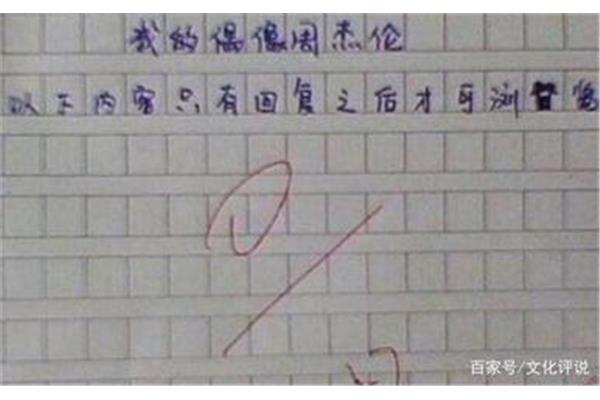 我的偶像周杰伦
以下内容只有回复之后才可浏览
百家号/文化评说